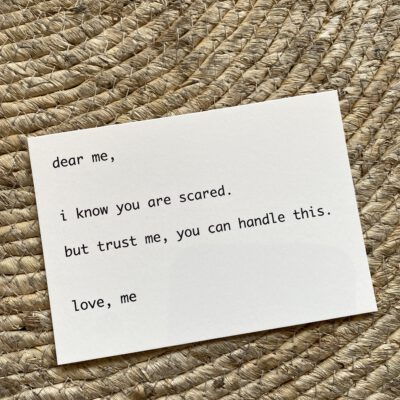 dear me,
i know you are scared.
but trust me, you can handle this.
love, me